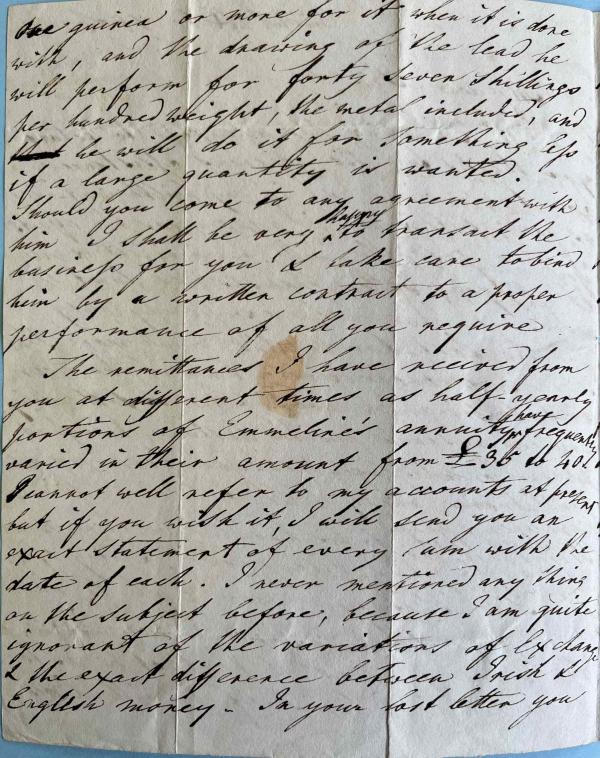 One guinea or more for it when it is done
with, and the drawing of the lead he
will perform for forty seven shillings
per hundred weight, the metal included, and
he will do it for something less
if a large quantity is wanted.
Should you come to any agreement with
him I shall be very happy to transact the
business for you & take care to bind
him by a written contract to a proper
performance of all you require
The remittances I have received from
you at different times as half-yearly
portions of Emmeline's annuity have frequently
varied in their amount from £35 to 40£
I cannot well refer to my accounts at present
but if you wish it, I will send you an
exact statement of every sum with the
date of each. I never mentioned any thing
on the subject before, because I am quite
ignorant of the variations of Exchange
& the exact difference between Irish &
English money - In your last letter you